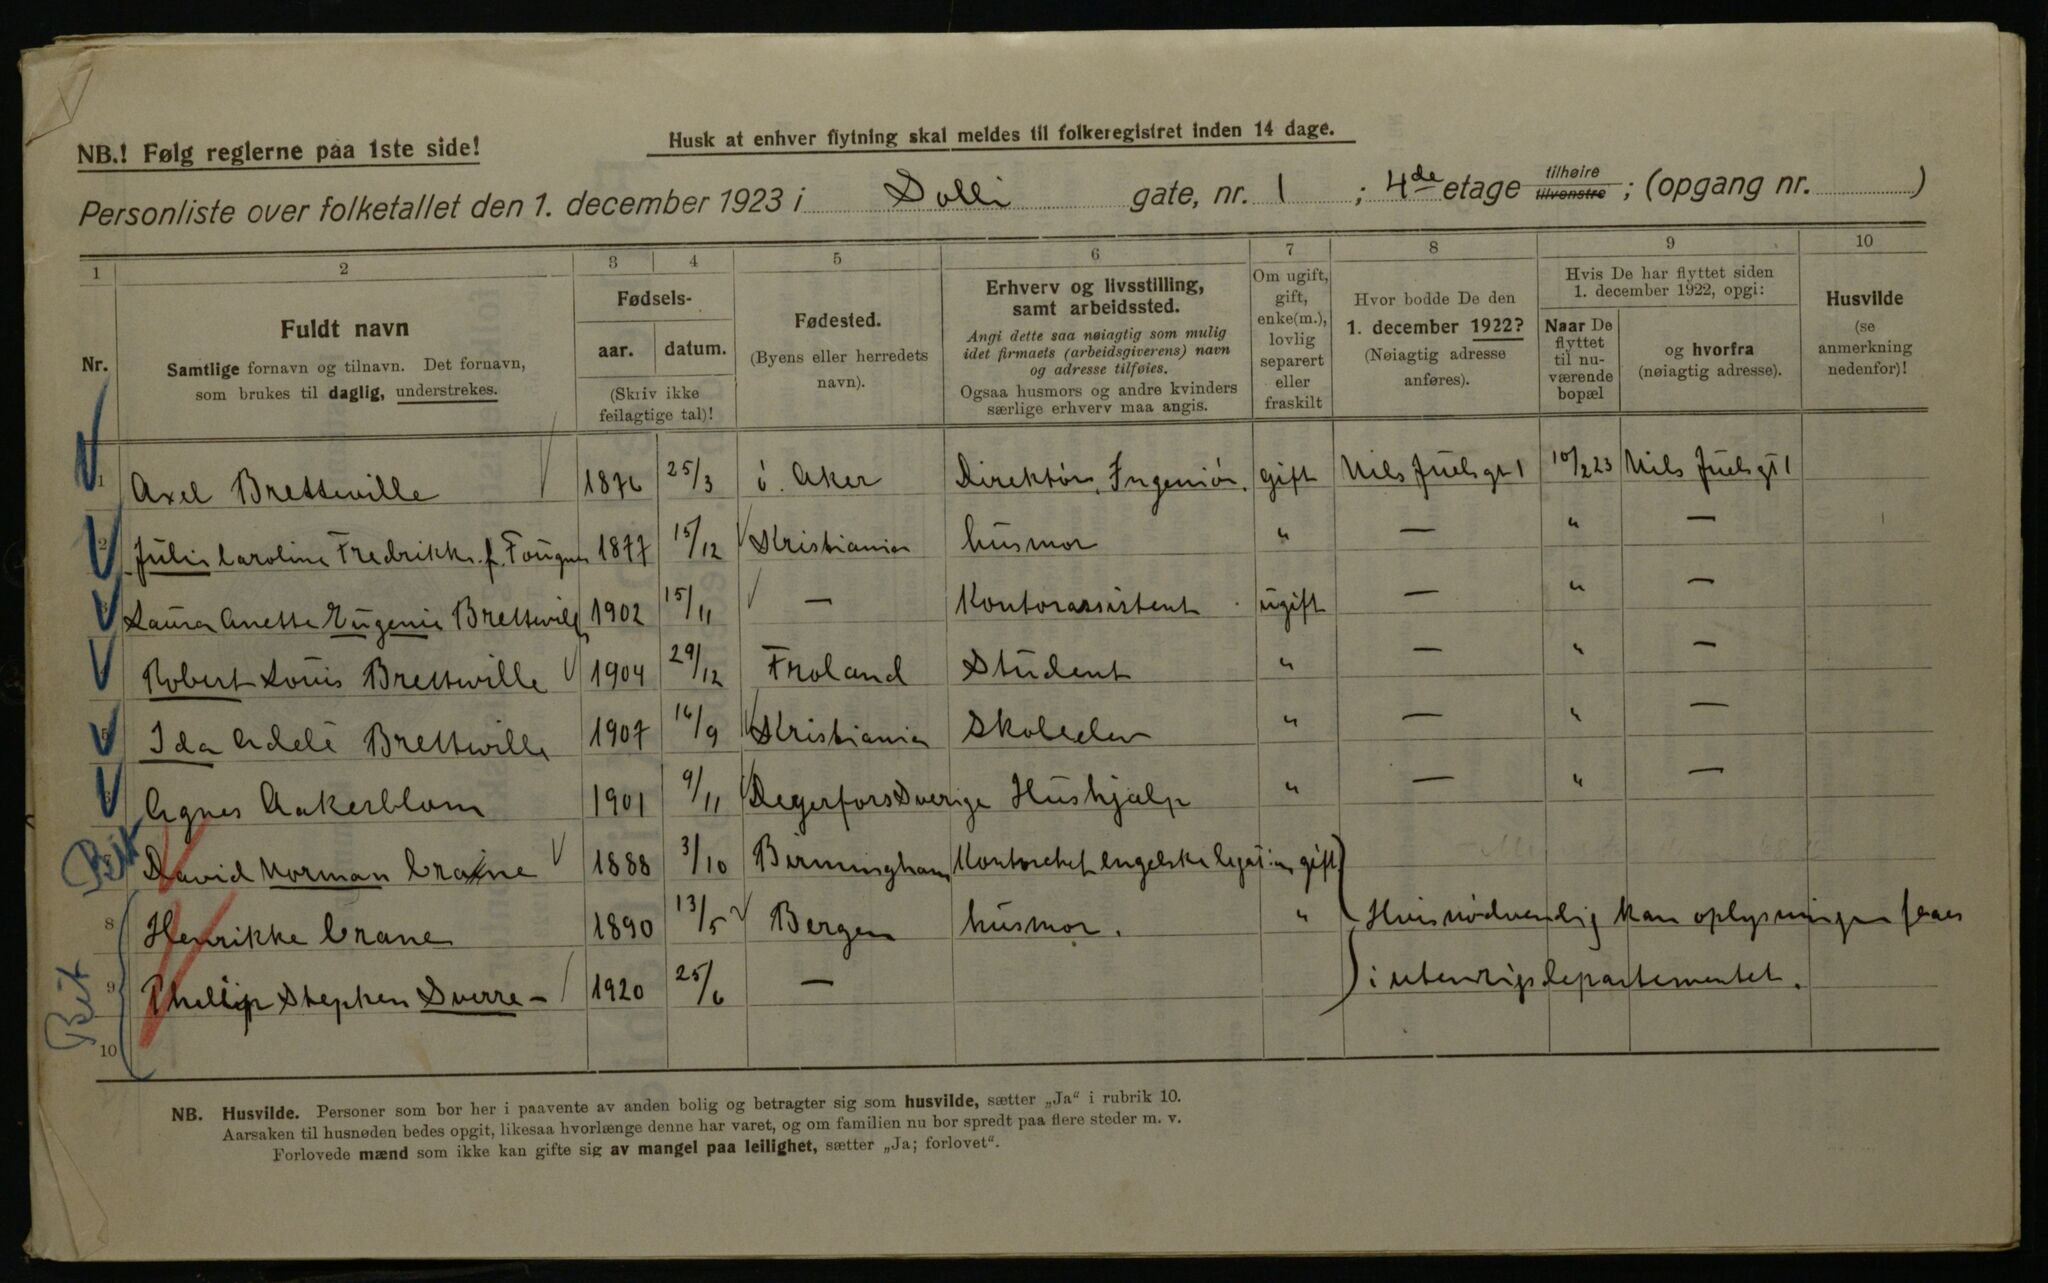 NB.! Følg reglerne paa 1ste side!
Husk at enhver flytning skal meldes til folkeregistret inden 14 dage.
Personliste over folketallet den 1. december 1923 i Solli gate, nr. 1 ; 4de etage tilhøire tilvenstre ; (opgang nr. )
1 2 3 4 5 6 7 8 9 10
Nr.
Fuldt navn
Samtlige fornavn og tilnavn. Det fornavn,
som brukes til daglig, understrekes.
Fødsels-
aar. datum.
(Skriv ikke
feilagtige tal)!
Fødested.
(Byens eller herredets
navn).
Erhverv og livsstilling,
samt arbeidssted.
Angi dette saa nøiagtig som mulig
idet firmaets (arbeidsgiverens) navn
og adresse tilføies.
Ogsaa husmors og andre kvinders
særlige erhverv maa angis.
Om ugift,
gift,
enke(m.),
lovlig
separert
eller
fraskilt
Hvor bodde De den
1. december 1922?
(Nøiagtig adresse
anføres).
Hvis De har flyttet siden
1. december 1922, opgi:
Naar De
flyttet
til nu-
værende
bopæl
og hvorfra
(nøiagtig adresse).
Husvilde
(se
anmerkning
nedenfor)!
1 Axel Bretteville 1876 25/3 Aker Direktør, Ingeniør. gift Nils Juels gt 1 10/2 23 Nils Juels gt 1
2 Julie Caroline Fredrikke f. Fougner 1877 15/12 Kristiania husmor " — " —
3 Laura Anette Eugenie Bretteville 1902 15/11 — Kontorassistent ugift — " —
Robert Louis Bretteville 1904 29/12 Froland Student " — " —
5 Ida Adele Bretteville 1907 16/9 Kristiania Skoleelev " — " —
Agnes Aakerblom 1901 9/11 Degerfors Sverige Hushjælp " — " —
David Norman Craine 1888 3/10 Birmingham Kontorchef engelske legation gift
8 Henrikke Crane 1890 13/5 Bergen husmor. " Hvis nødvendig kan oplysninger faaes
9 Phillip Stephen Sverre — 1920 25/6 — i utenrigsdepartementet.
10
NB. Husvilde. Personer som bor her i paavente av anden bolig og betragter sig som husvilde, sætter „Ja“ i rubrik 10.
Aarsaken til husnøden bedes opgit, likesaa hvorlænge denne har varet, og om familien nu bor spredt paa flere steder m. v.
Forlovede mænd som ikke kan gifte sig av mangel paa leilighet, sætter „Ja; forlovet“.